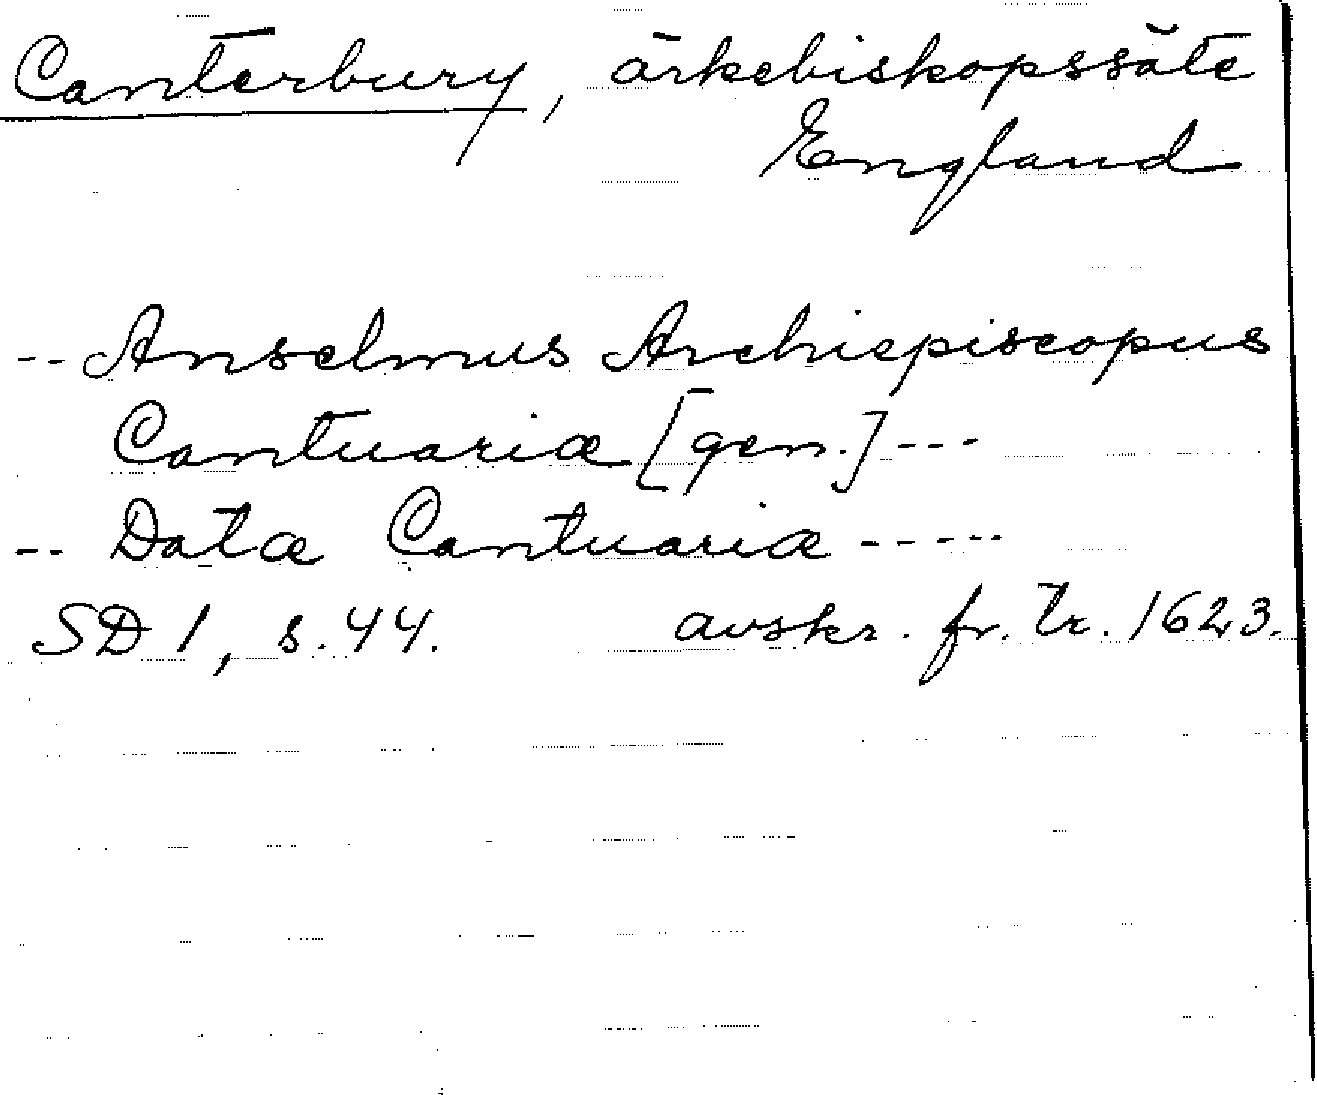 Canterbury, ärkebiskopssäte
England
-- Anselmus Archiepiscopus
Cantuariæ [gen.] ---
-- Datæ Cantuariæ -----
SD 1, s. 44. avskr. fr. tr. 1623.